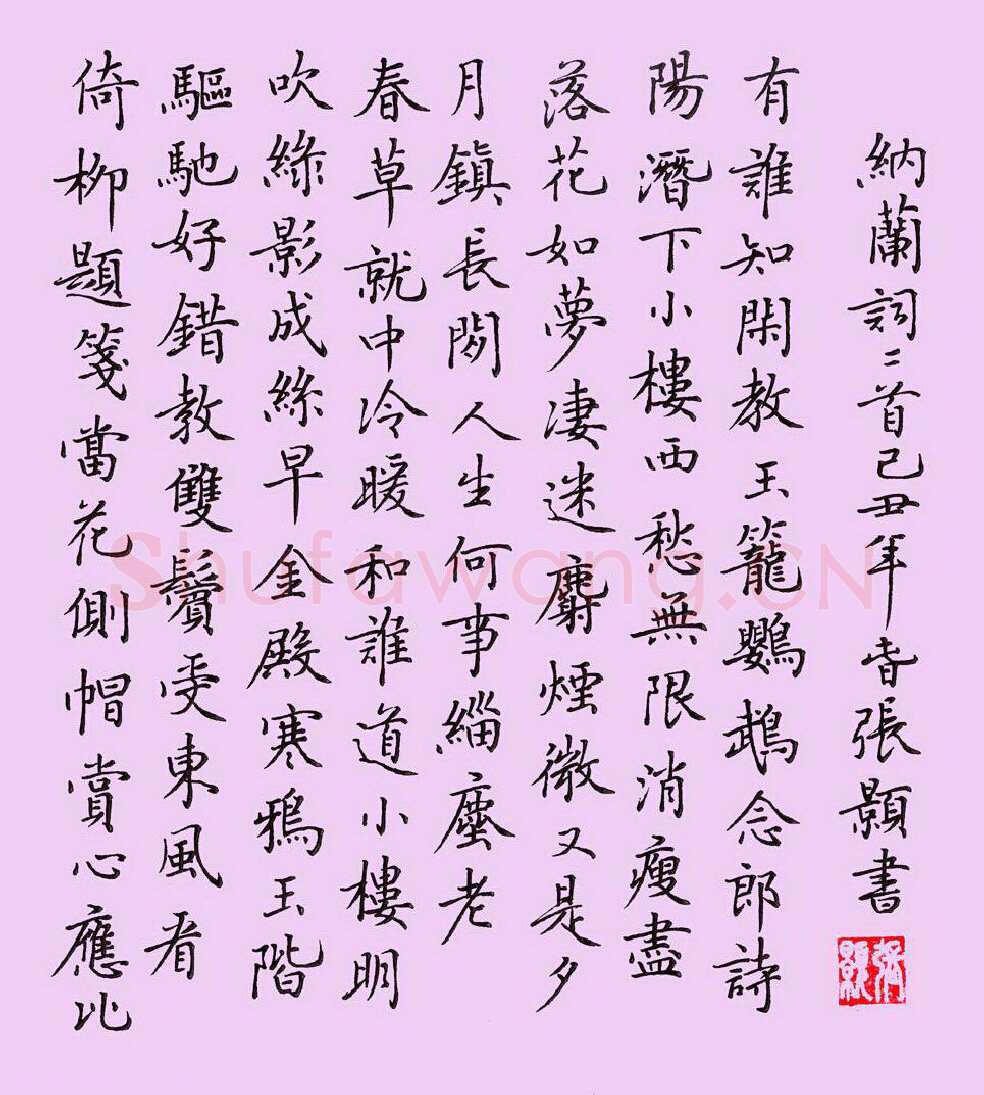 倚柳題箋當花側帽賞心應比
驅馳好錯教雙鬢受東風看
吹綠影成絲早金殿寒鴉玉階
春草就中冷暖和誰道小樓明
月鎮長閒人生何事緇塵老
落花如夢凄迷麝煙微又是夕
陽潛下小樓西愁無限消瘦盡
有誰知閑教玉籠鸚鵡念郎詩
納蘭詞二首己丑年春張顥書
張顥
Shufawang.CN